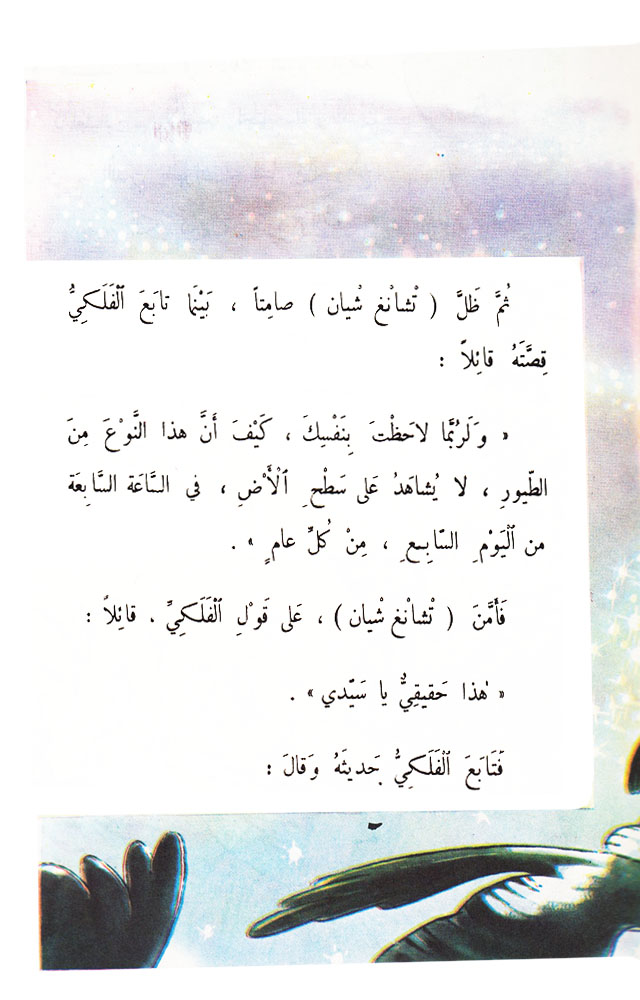 ثُمَّ ظَلَّ ( تْشانْغ شْيان ) صامِتاً ، بَيْنَما تابَعَ ٱلْفَلَكِيُّ
قِصَّتَهُ قائِلاً :
« وَلَرُبَّما لاحَظْتَ بِنَفْسِكَ ، كَيْفَ أَنَّ هذا النَّوْعَ مِنَ
الطّيورِ ، لا يُشاهَدُ عَلى سَطْحِ ٱلْأَرْضِ ، في السَّاعَة السَّابِعَة
من ٱلْيَوْمِ السّابِعِ ، مِنْ كُلِّ عامٍ » .
فَأَمَّنَ ( تْشانْغ شْيان ) ، عَلى قَوْلِ ٱلْفَلَكِيِّ . قائِلاً :
« هٰذا حَقيقِيٌّ يا سَيِّدي » .
فَتَابَعَ ٱلْفَلَكِيُّ حَديثَهُ وَقالَ :